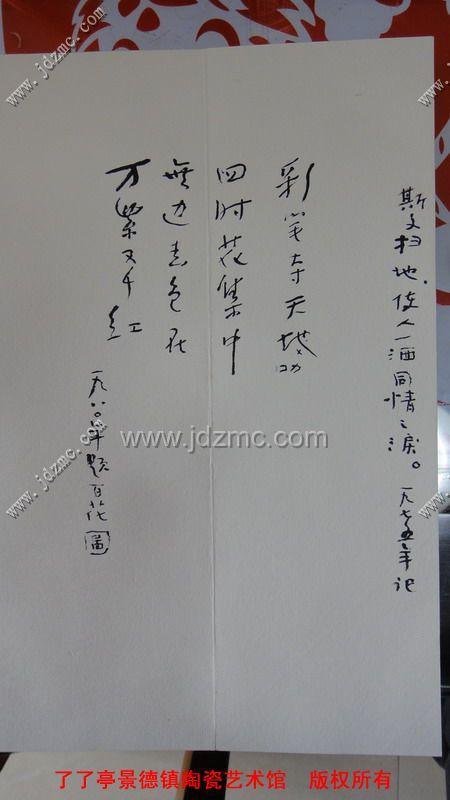 斯文扫地，使人一洒同情之泪。一九七五年记
彩笔夺天功
四时花集中
無边春色在
万紫又千红
一九八〇年题百花图
www.jdzmc.com
www.jdzmc.com
www.jdzmc.com
www.jdzmc.com
www.jdzmc.com
了了亭景德镇陶瓷艺术馆 版权所有